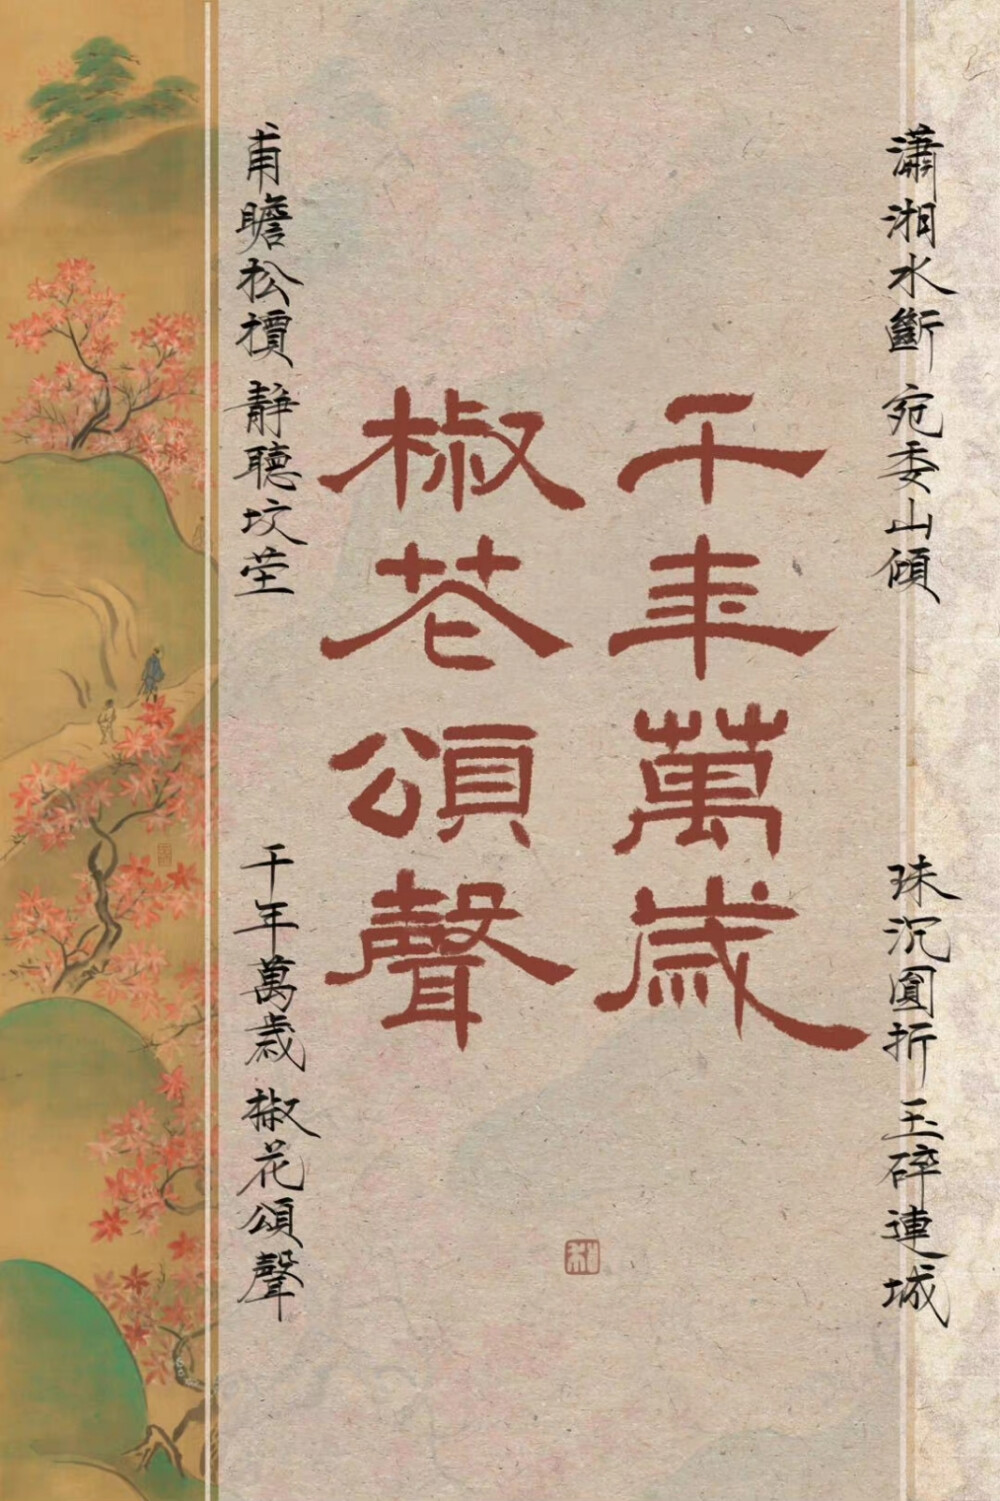 瀟湘水斷 宛委山傾
珠沉圓折 玉碎連城
千年萬歲
椒花頌聲
甫瞻松檟 靜聴坟茔
千年萬歲 椒花頌聲